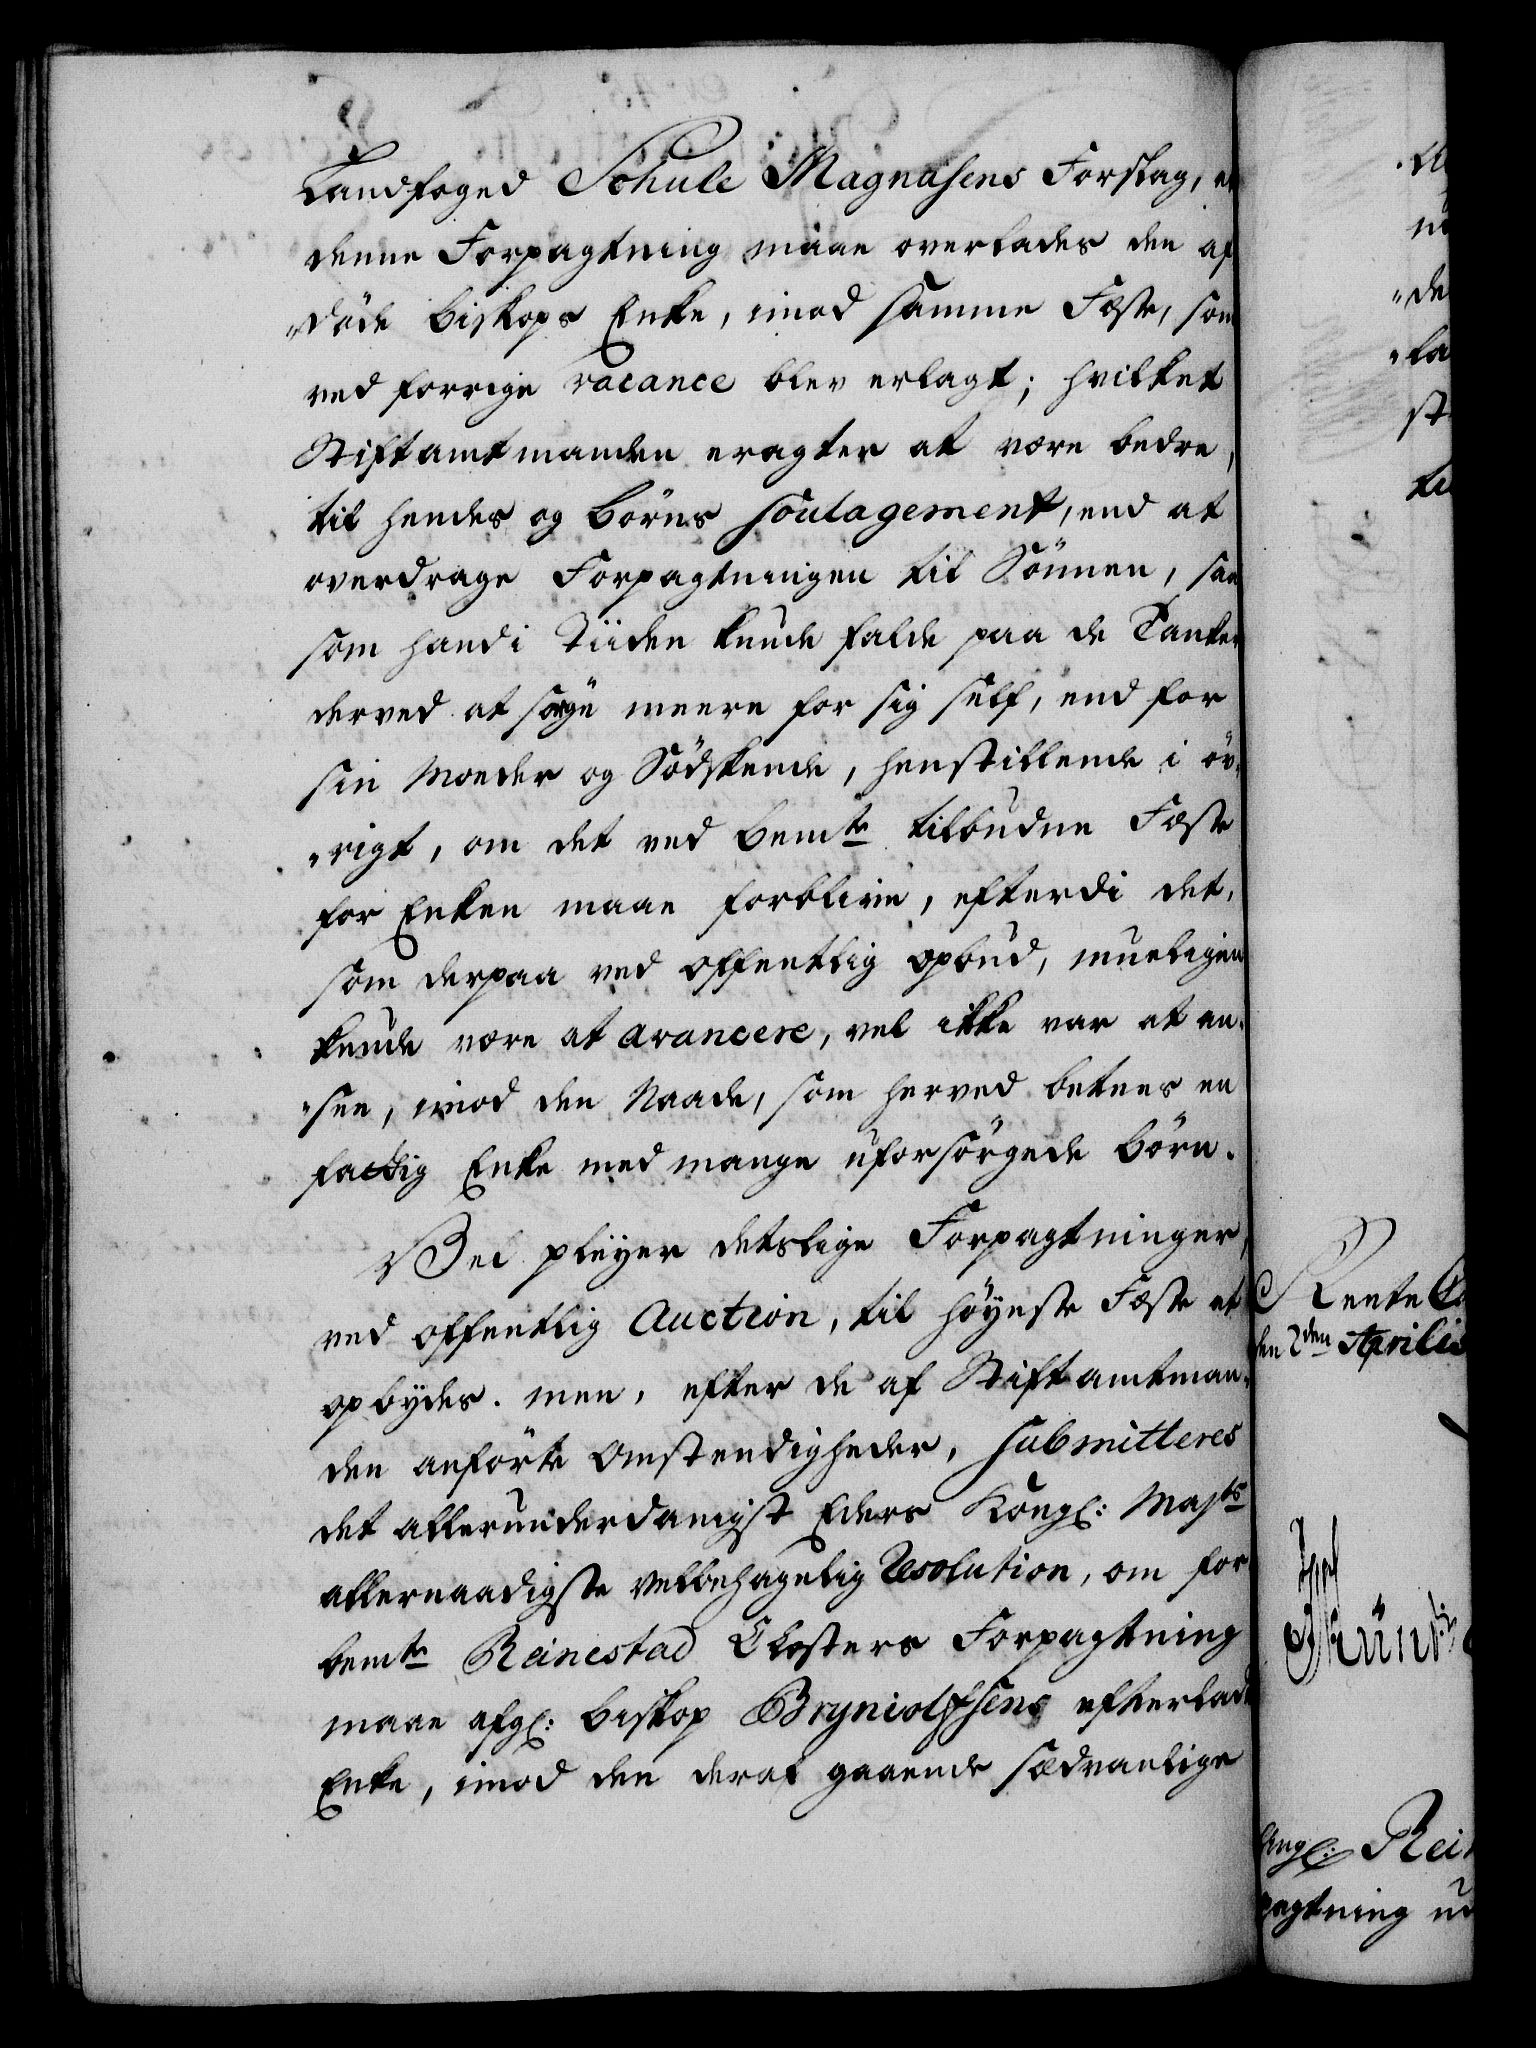 Landfoged Schule Magnusens Forslag, at
denne Forpagtning maae overlades den af
døde Biskops Enke, imod samme Fæste, som
ved forrige vacance blev erlagt; hvilket
Stiftamtmanden eragter at være bedre,
til hendes og Børns soulagement, end at
overdrage Forpagtningen til Sönnen, saa
som hand i Tiiden kunde falde paa de Tanker
derved at sørge meere for sig self, end for
sin Moeder og Södskende, henstillende i øv-
rigt, om det ved bemte tilbudne Fæste
for Enken maae forblive, efterdi det,
som derpaa ved offentlig opbud, mueligen
kunde være at avancere, vel ikke var at an-
see, imod den Naade, som herved betees en
fattig Enke med mange uforsörgede Börn.
Vel pleyer detslige Forpagtninger,
ved offentlig Auction, til höyeste Fæste at
opbydes. men, efter de af Stiftamtman-
den anförte Omstendigheder, submitteres
det allerunderdanigst Eders Kongl: Majts
allernaadigste velbehagelig Resolution, om for
bemte Reinestad Closters Forpagtning
maae afgl: Biskop Bryniolfsens efterladte
Enke, imod den deraf gaaende sædvanlige
Rente
den 2den Aprilis
Rei
pagtning ud